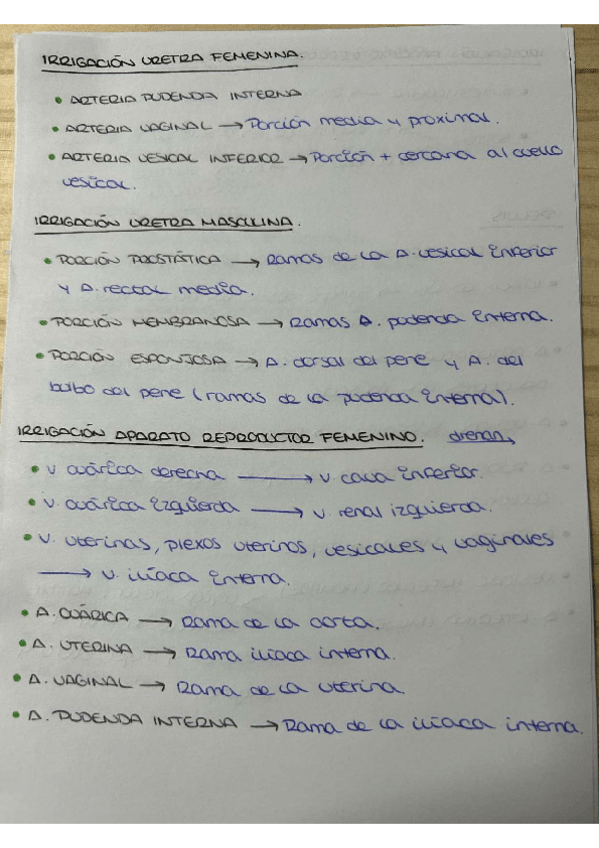 IRRIGACIÓN URETRA FEMENINA.
• ARTERIA PUDENDA INTERNA
• ARTERIA VAGINAL → Porción media y proximal.
• ARTERIA VESICAL INFERIOR → Porción + cercana al cuello
vesical.
IRRIGACIÓN URETRA MASCULINA.
• PORCIÓN PROSTÁTICA → Ramas de la A. vesical inferior
y A. rectal media.
• PORCIÓN MEMBRANOSA → Ramas A. pudenda interna.
• PORCIÓN ESPONJOSA → A. dorsal del pene y A. del
bulbo del pene (ramas de la pudenda interna).
IRRIGACIÓN APARATO REPRODUCTOR FEMENINO. drenan
• V ovárica derecha → V. cava inferior.
• V. ovárica izquierda → V. renal izquierda.
• V. uterinas, plexos uterinos, vesicales y vaginales
→ V. ilíaca interna.
• A. OVÁRICA → Rama de la aorta.
• A. UTERINA → Rama iliaca interna.
• A. VAGINAL → Rama de la uterina.
• A. PUDENDA INTERNA → Rama de la iliaca interna.